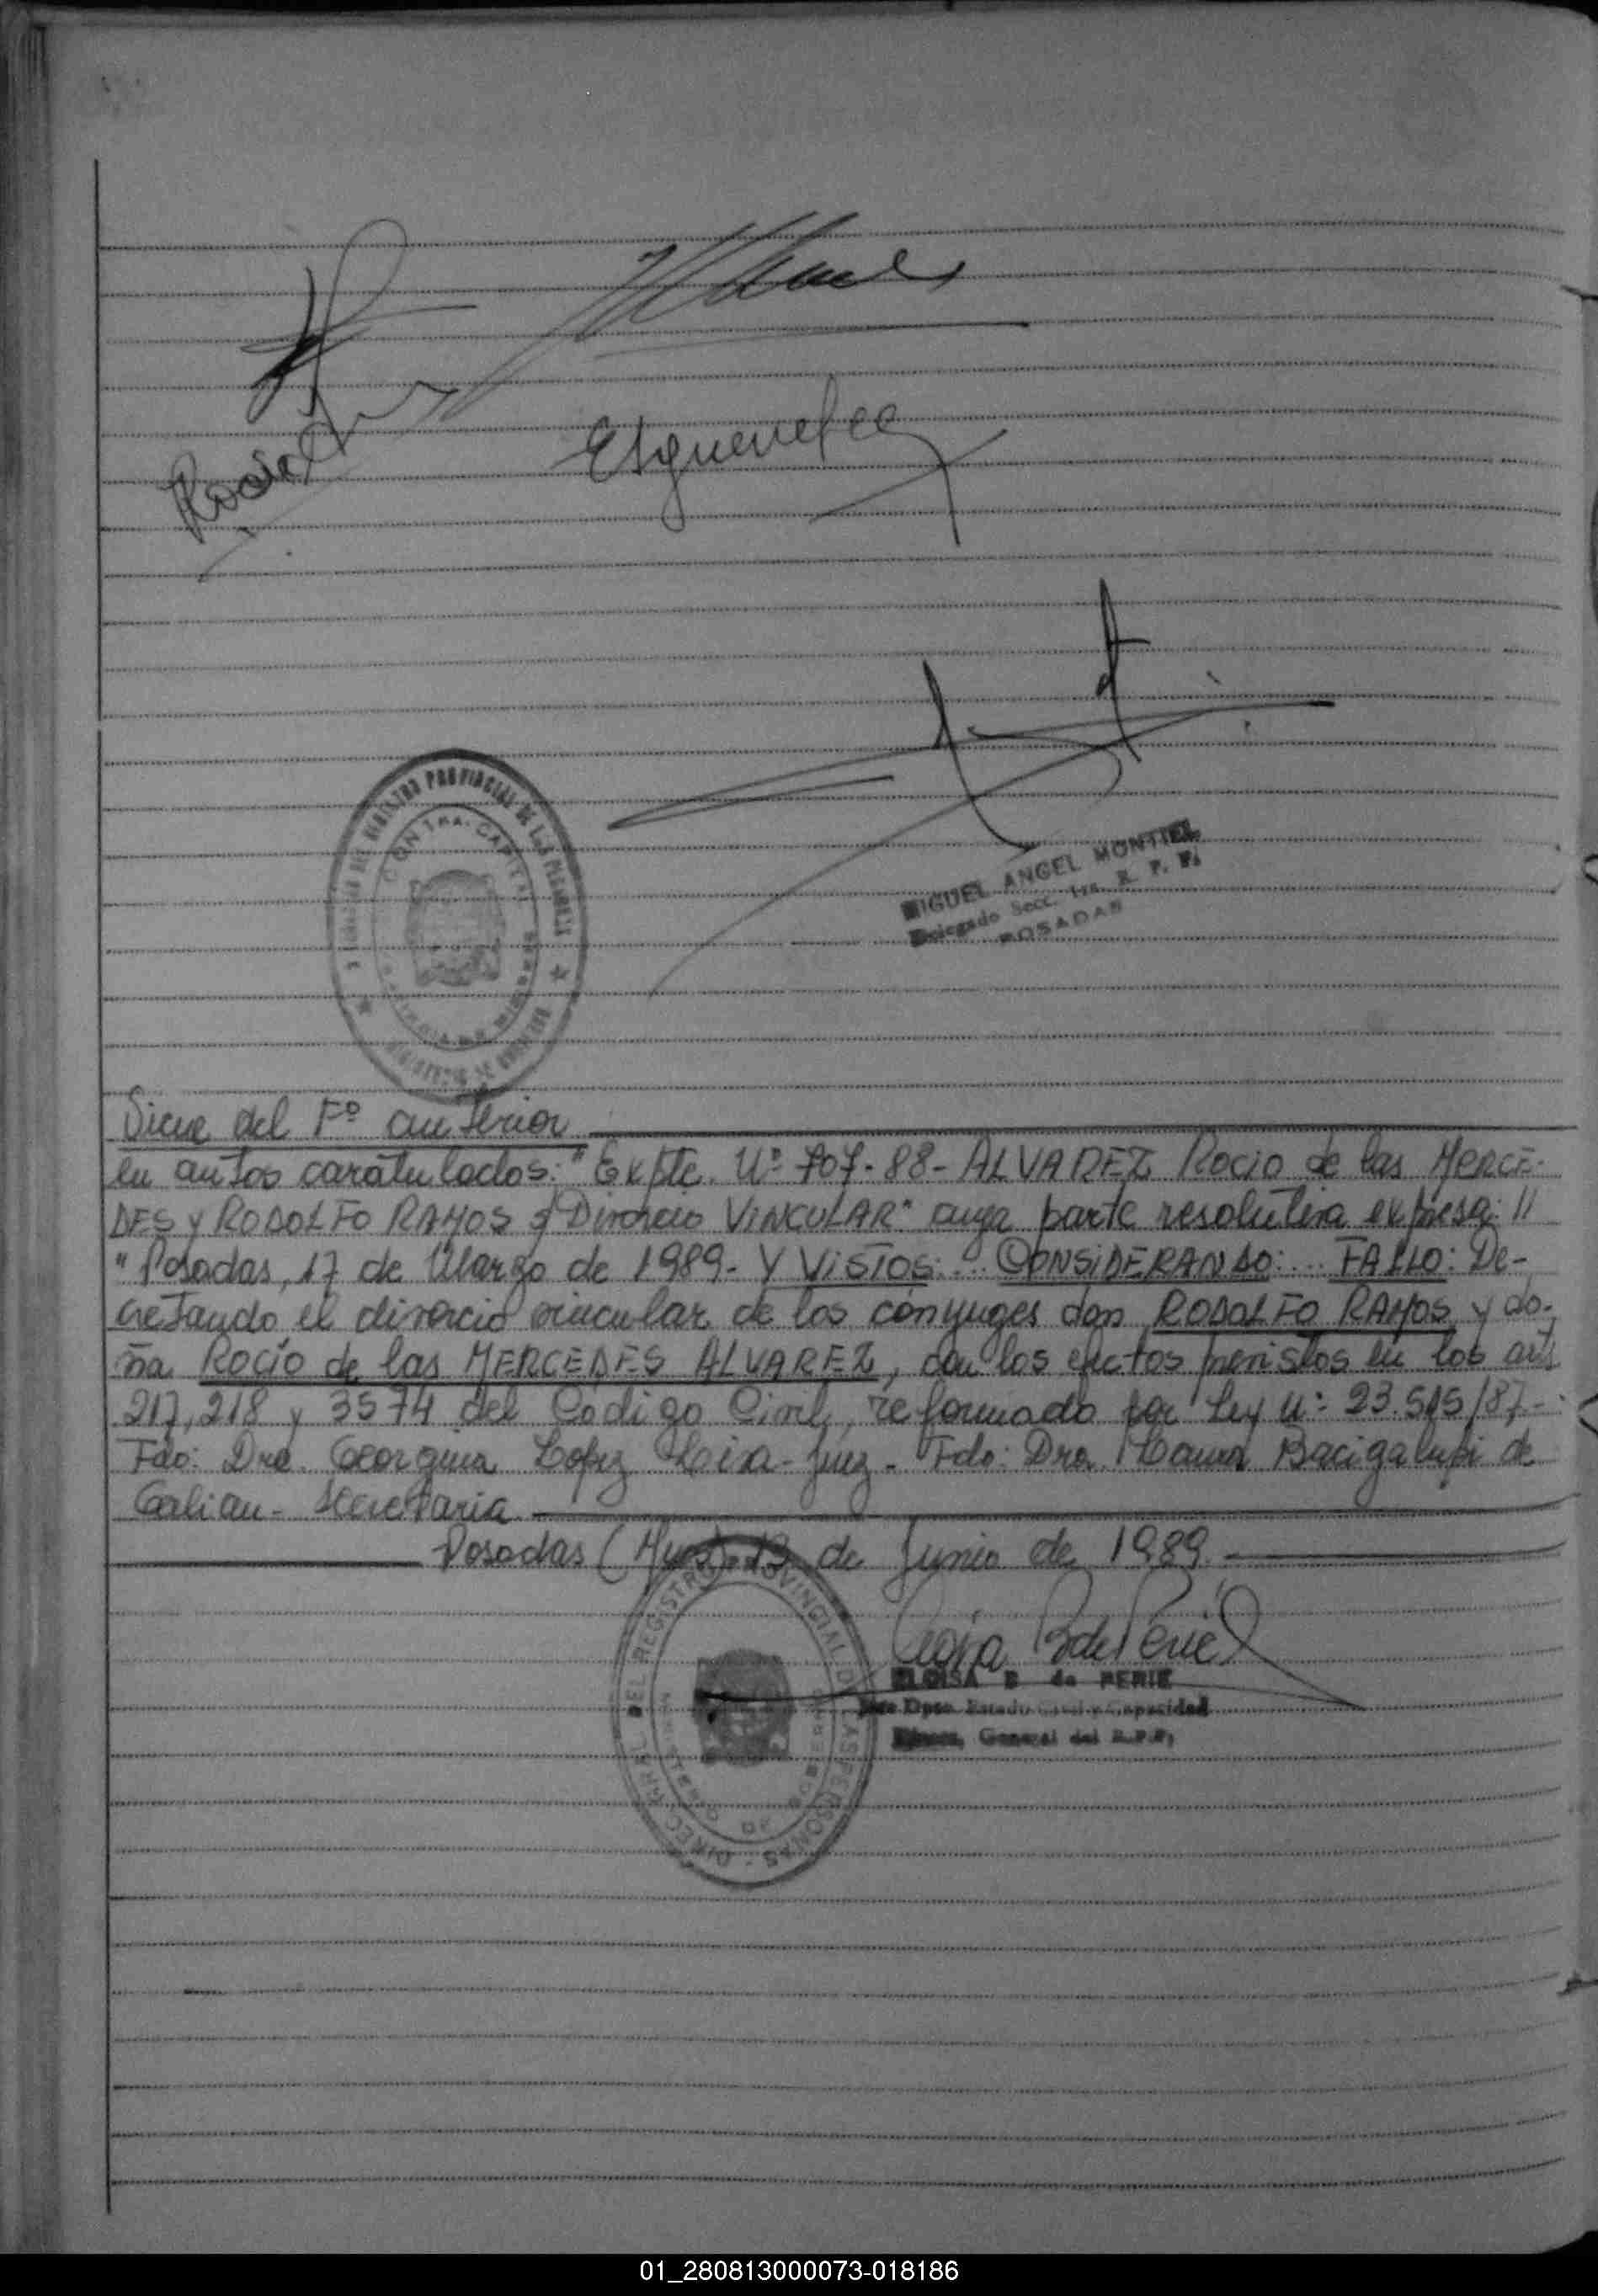 Rocio
MIGUEL ANGEL MONTIEL
Delegado Secc. 1ra. R. P. P.
POSADAS
REGISTRO PROVINCIAL DE LAS PERSONAS
Viene del Fº anterior
en autos caratulados: "Expte. Nº 707-88- ALVAREZ Rocio de las MERCE-
DES y RODOLFO RAMOS s/ Divorcio VINCULAR" cuya parte resolutiva expresa: //
"Posadas, 17 de Marzo de 1989.- Y VISTOS:... CONSIDERANDO:... FALLO: De-
cretando el divorcio vincular de los cónyuges don RODOLFO RAMOS y do-
ña ROCIO de las MERCEDES ALVAREZ, con los efectos previstos en los arts
217, 218 y 3574 del Codigo Civil, reformado por Ley Nº 23.515/87.-
Fdo: Dra. Georgina Lopez - Juez. - Fdo: Dra. Laura Bacigalupi de
Galian - Secretaria.
Posadas (Mnes) 13 de Junio de 1989.
DIREC. GRAL. DEL REGISTRO PROVINCIAL DE LAS PERSONAS
MINISTERIO DE GOBIERNO
ELOISA B de PERIE
Jefe Dpto. Estado Civil y Capacidad
Direcc. General del R.P.P.
01_280813000073-018186